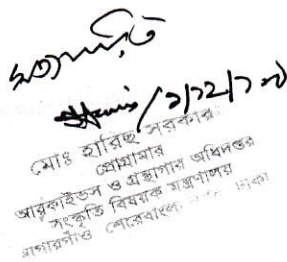 সত্যায়িত
মোঃ হারিছ সরকার
প্রোগ্রামার
আরকাইভস ও গ্রন্থাগার অধিদপ্তর
সংস্কৃতি বিষয়ক মন্ত্রণালয়
আগারগাঁও শেরেবাংলা ঢাকা